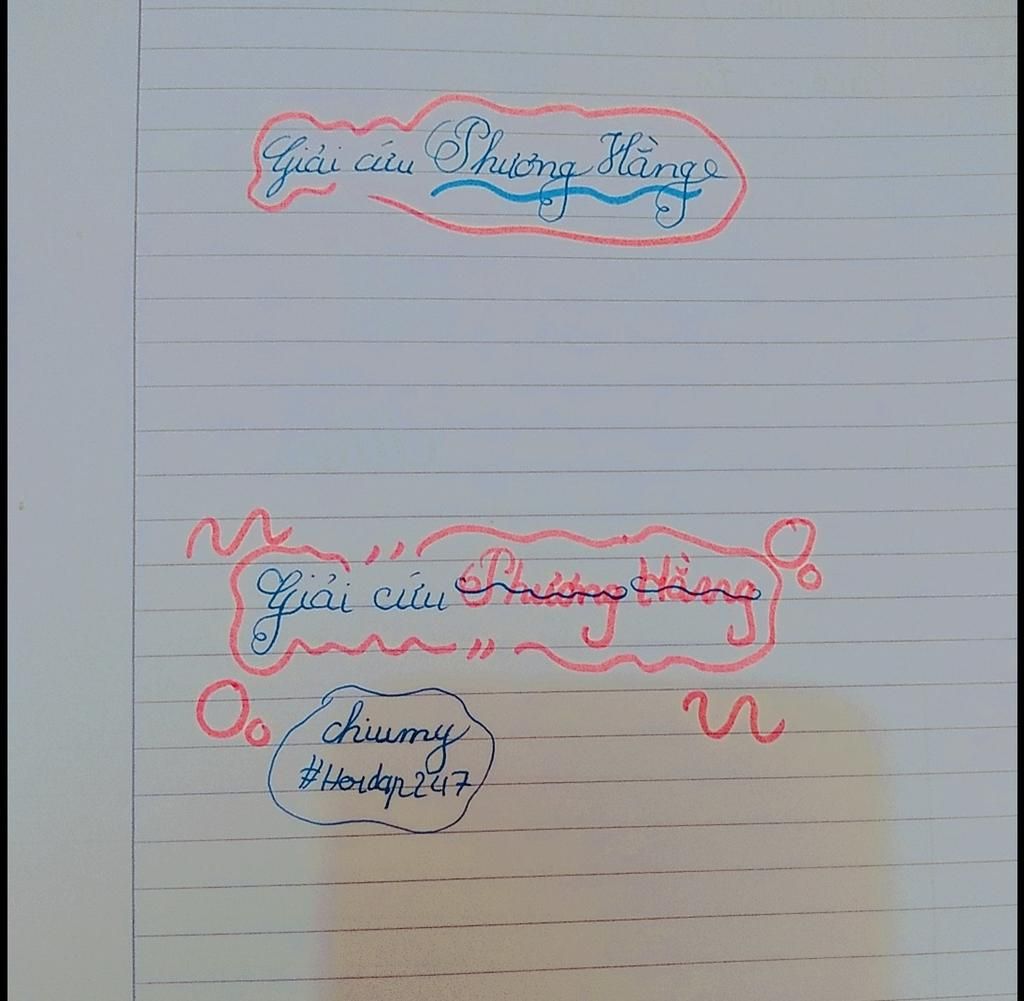 Giải cứu Phương Hằng
Giải cứu Phương Hằng
chiumy
#Hoidap247